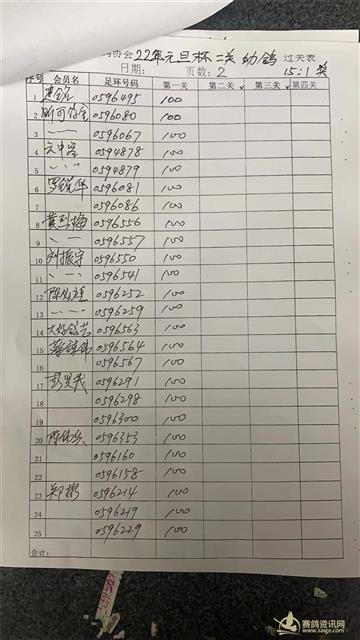 协会22年元旦杯二关幼鸽 过关表
日期： 页数：2 15:1奖
序号 会员名 足环号码 第一关 第二关 第三关 第四关
1 0596495 100
2 0596080 100
3 0596067 100
4 0594878 100
5 0594879 100
6 0596081 100
7 0596086 100
8 0596556 100
9 0596557 100
10 刘振宇 0596550 100
11 0596541 100
12 0596252 100
13 0596259 100
14 0596563 100
15 0596564 100
16 0596567 100
17 0596291 100
18 0596298 100
19 0596300 100
20 0596353 100
21 0596160 100
22 0596158 100
23 郑彬 0596214 100
24 0596219 100
25 0596229 100
合计：
赛鸽资讯网
www.saige.com